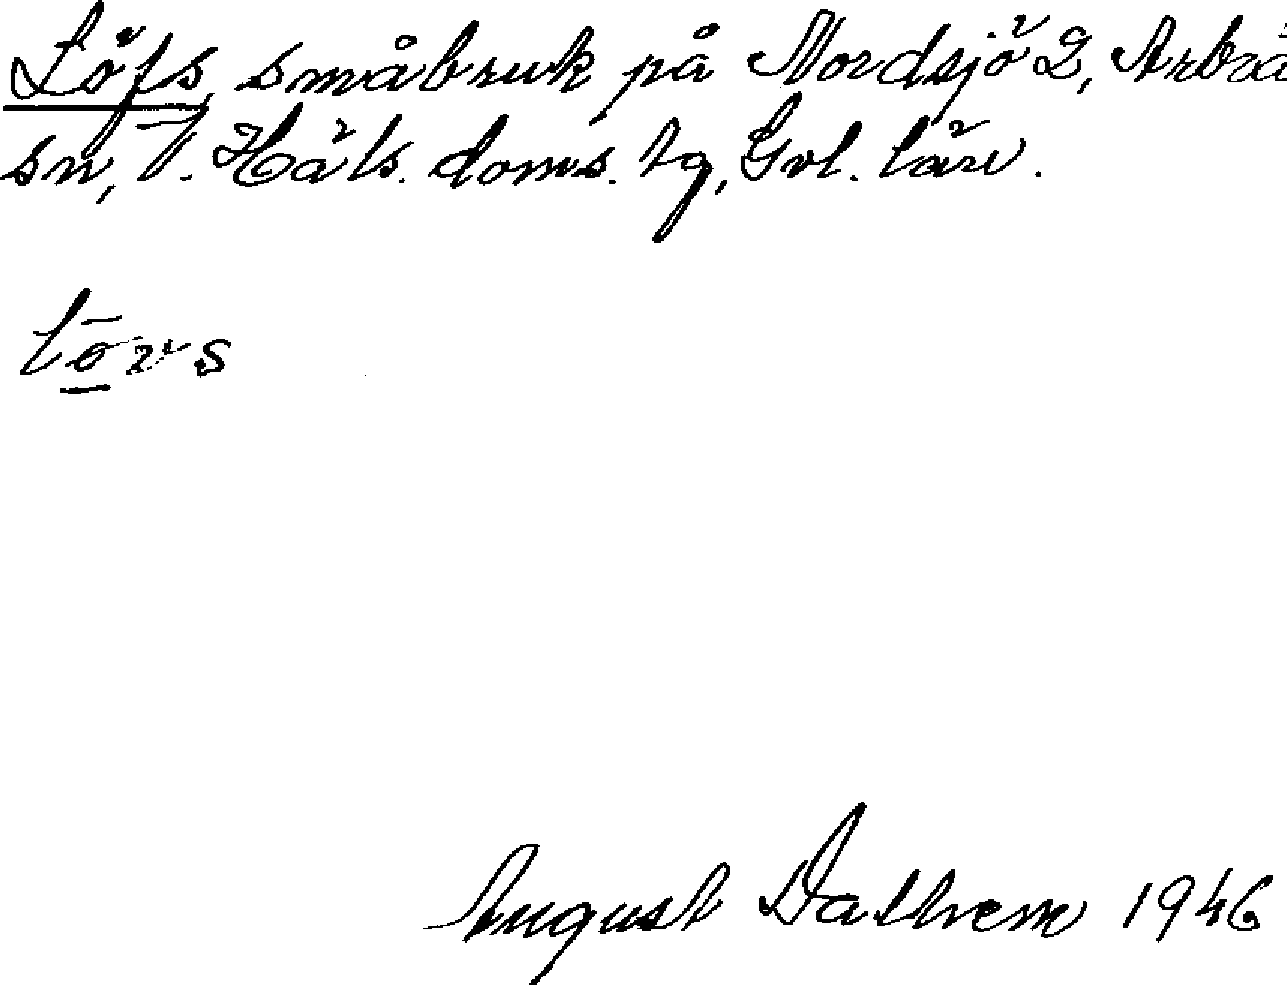 Löfs, småbruk på Nordsjö 2, Arbrå
sn, V. Häls. doms. tg, Gvl. län.
lōvs
August Dalhem 1946